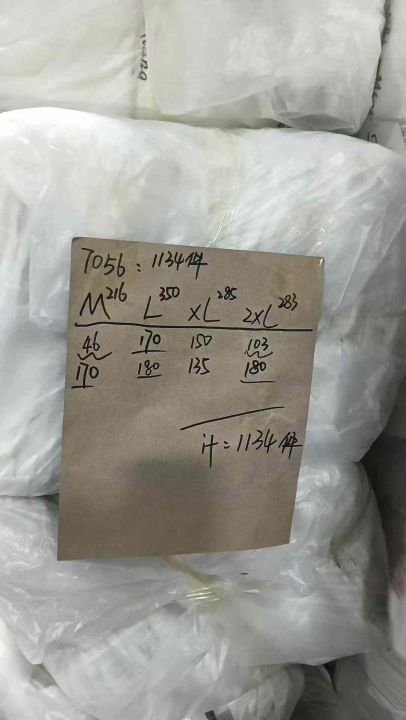 7056:1134件
M216 L350 XL285 2XL283
46 170 150 103
170 180 135 180
计:1134件